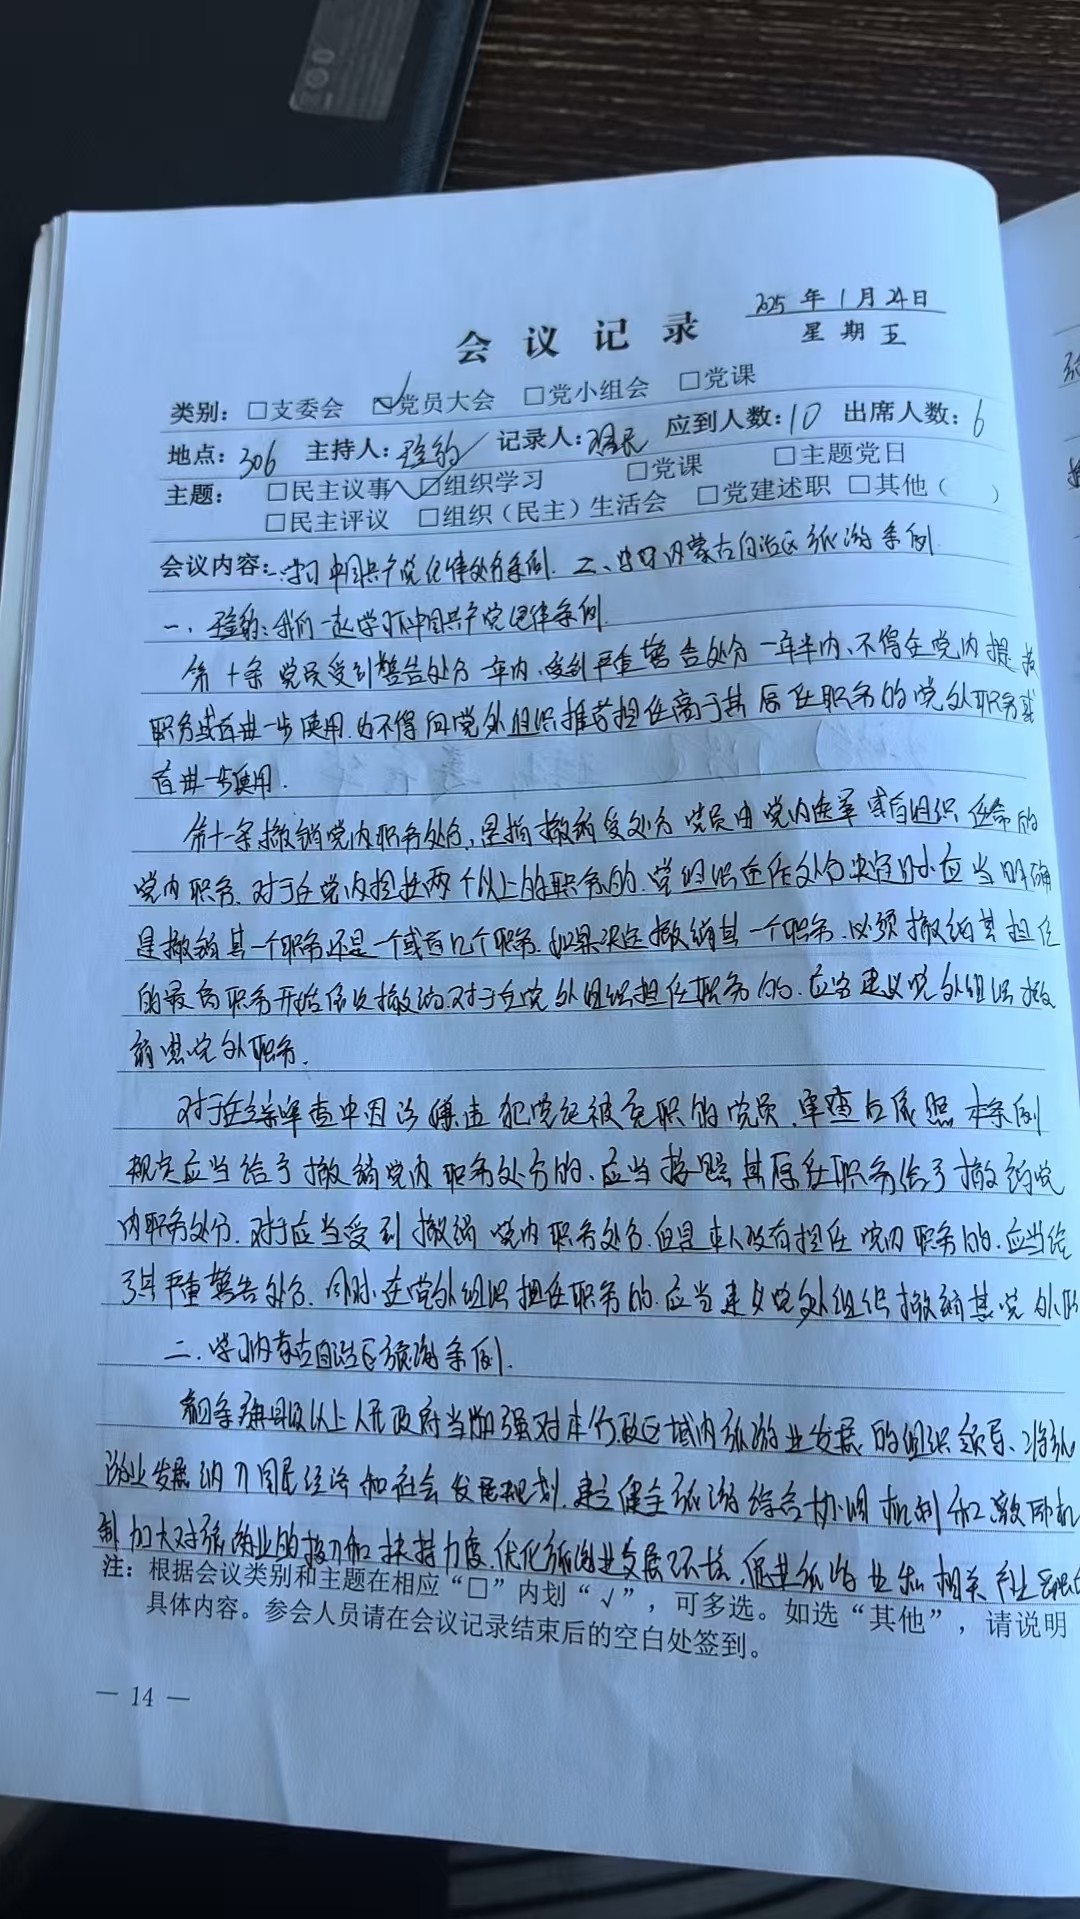 2025年1月24日
会议记录
星期五
类别：□支委会 ☑党员大会 □党小组会 □党课
地点：306 主持人： 记录人： 应到人数：10 出席人数：6
主题： □民主议事 ☑组织学习 □党课 □主题党日
□民主评议 □组织（民主）生活会 □党建述职 □其他（ ）
会议内容：一、学习中国共产党纪律处分条例. 二、学习内蒙古自治区旅游条例
一、：我们一起学习中国共产党纪律条例.
第十条 党员受到警告处分一年内、受到严重警告处分一年半内、不得在党内提拔
职务或者进一步使用.也不得向党外组织推荐担任高于其原任职务的党外职务或
者进一步使用.
第十一条撤销党内职务处分,是指撤销受处分党员由党内选举或者组织任命的
党内职务.对于在党内担任两个以上的职务的.党组织在作处分决定时小应当明确
是撤销其一个职务还是一个或者几个职务.如果决定撤销其一个职务.必须撤销其担任
的最高职务开始依次撤销.对于在党外组织担任职务的.应当建议党外组织撤
销党外职务.
对于在立案审查中因涉嫌违犯党纪被免职的党员.审查后依照本条例
规定应当给予撤销党内职务处分的.应当按照其原任职务给予撤销党
内职务处分.对于应当受到撤销党内职务处分.但是本人没有担任党内职务的.应当给
予其严重警告处分.同时.在党外组织担任职务的.应当建议党外组织撤销其党外职
二.学习内蒙古自治区旅游条例.
第四条旗县级以上人民政府当加强对本行政区域内旅游业发展的组织领导、将旅
游业发展纳入国民经济和社会发展规划.建立健全旅游综合协调机制和激励机
制加大对旅游业的投入和扶持力度.优化旅游业发展环境.促进旅游业和相关产业
注：根据会议类别和主题在相应“□”内划“√”，可多选。如选“其他”，请说明
具体内容。参会人员请在会议记录结束后的空白处签到。
— 14 —